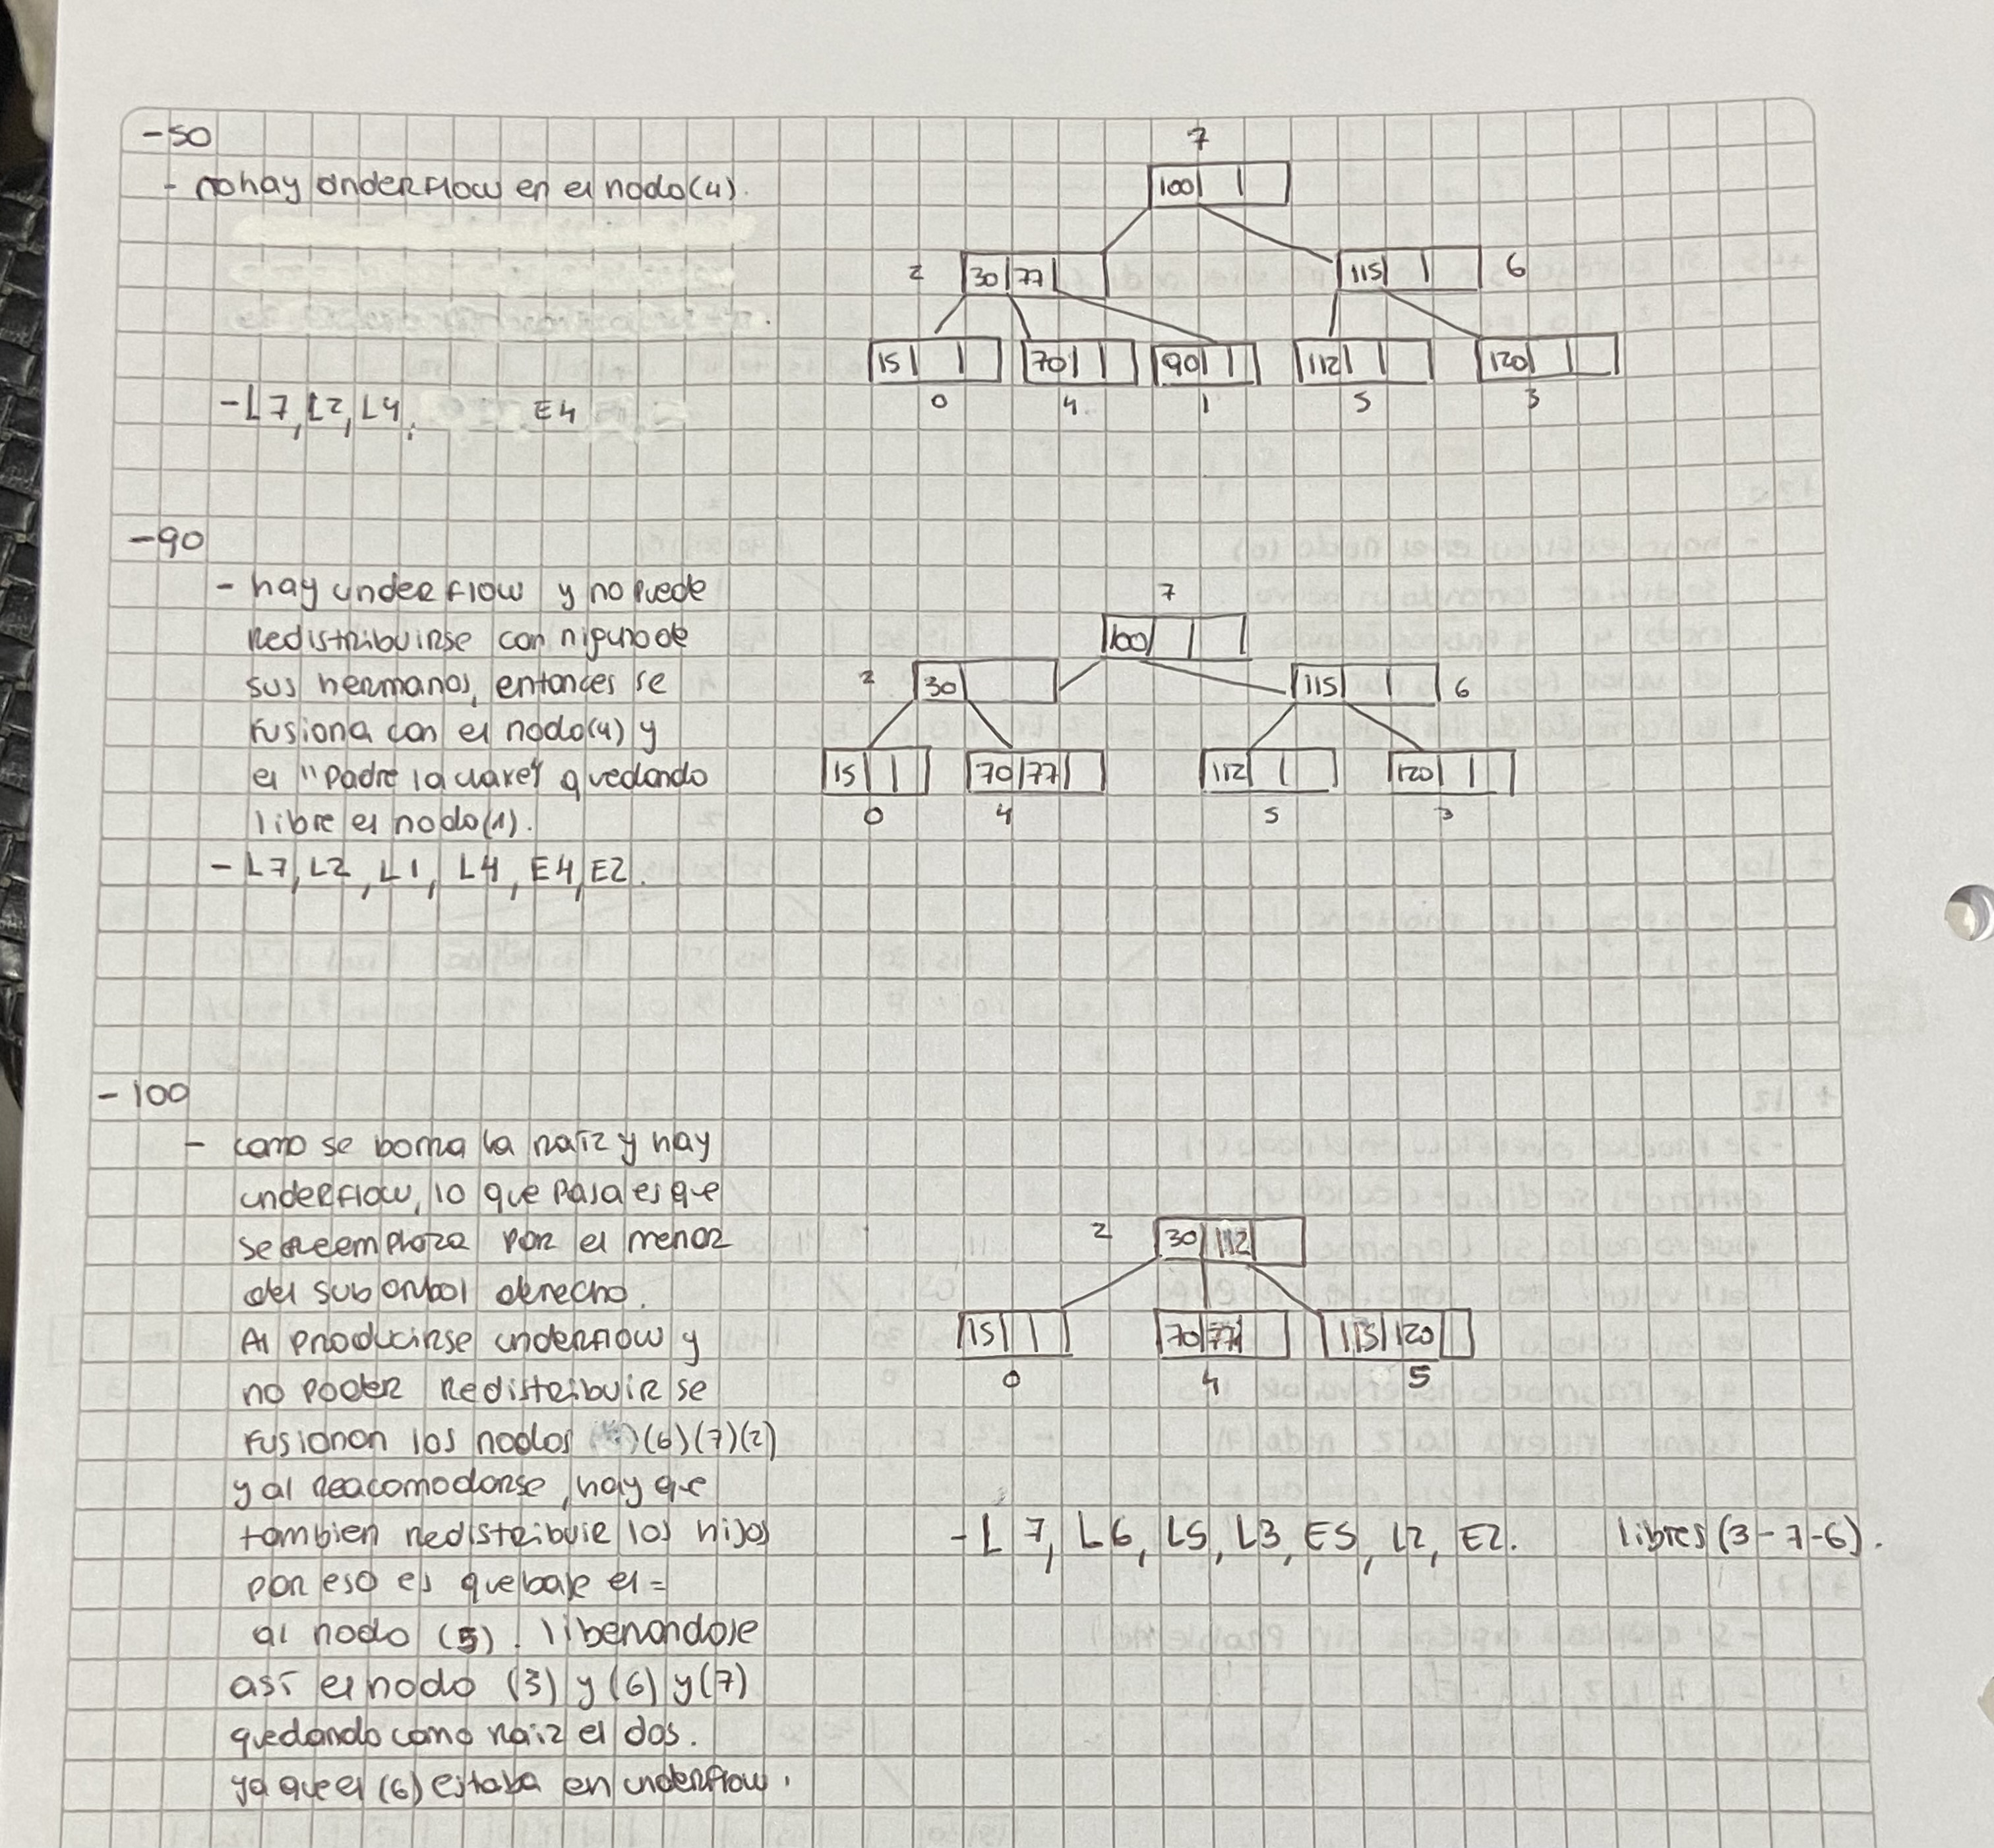 -50
- no hay underflow en el nodo(4).
7
100
2 30 77
115 6
15 70 90 112 120
0 4 1 5 3
- L7, L2, L4, E4
-90
- hay underflow y no puede
redistribuirse con niguno de
sus hermanos, entonces se
fusiona con el nodo(4) y
el "padre la clave" quedando
libre el nodo(1).
- L7, L2, L1, L4, E4, E2.
7
100
2 30
115 6
15 70 77 112 120
0 4 5 3
-100
- como se borra la raíz y hay
underflow, lo que pasa es que
se reemplaza por el menor
del subarbol derecho.
Al producirse underflow y
no poder redistribuirse
fusionan los nodos (6)(7)(2)
y al reacomodarse, hay que
tambien redistribuir los hijos
por eso es que baje el =
al nodo (5). liberandose
así el nodo (3) y (6) y (7)
quedando como raiz el dos.
ya que el (6) estaba en underflow.
2 30 112
15 70 77 115 120
0 4 5
- L 7, L6, L5, L3, E5, L2, E2. libres (3-7-6).